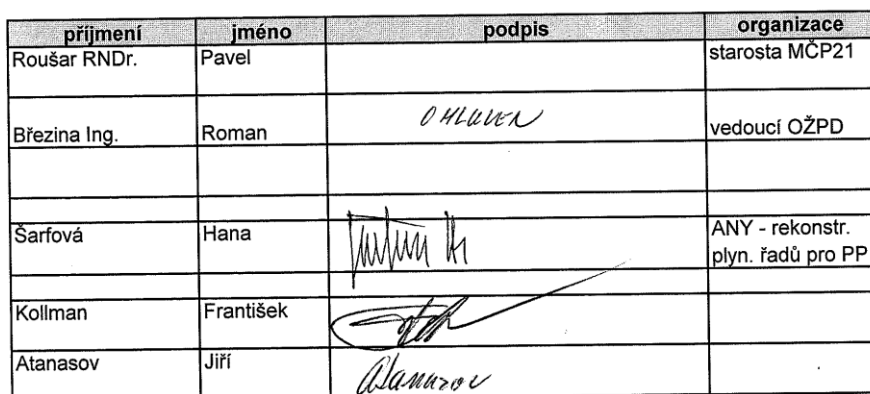 příjmení jméno podpis organizace
Roušar RNDr. Pavel starosta MČP21
Březina Ing. Roman OMLUVEN vedoucí OŽPD
Šarfová Hana ANY - rekonstr.
plyn. řadů pro PP
Kollman František
Atanasov Jiří Atanasov